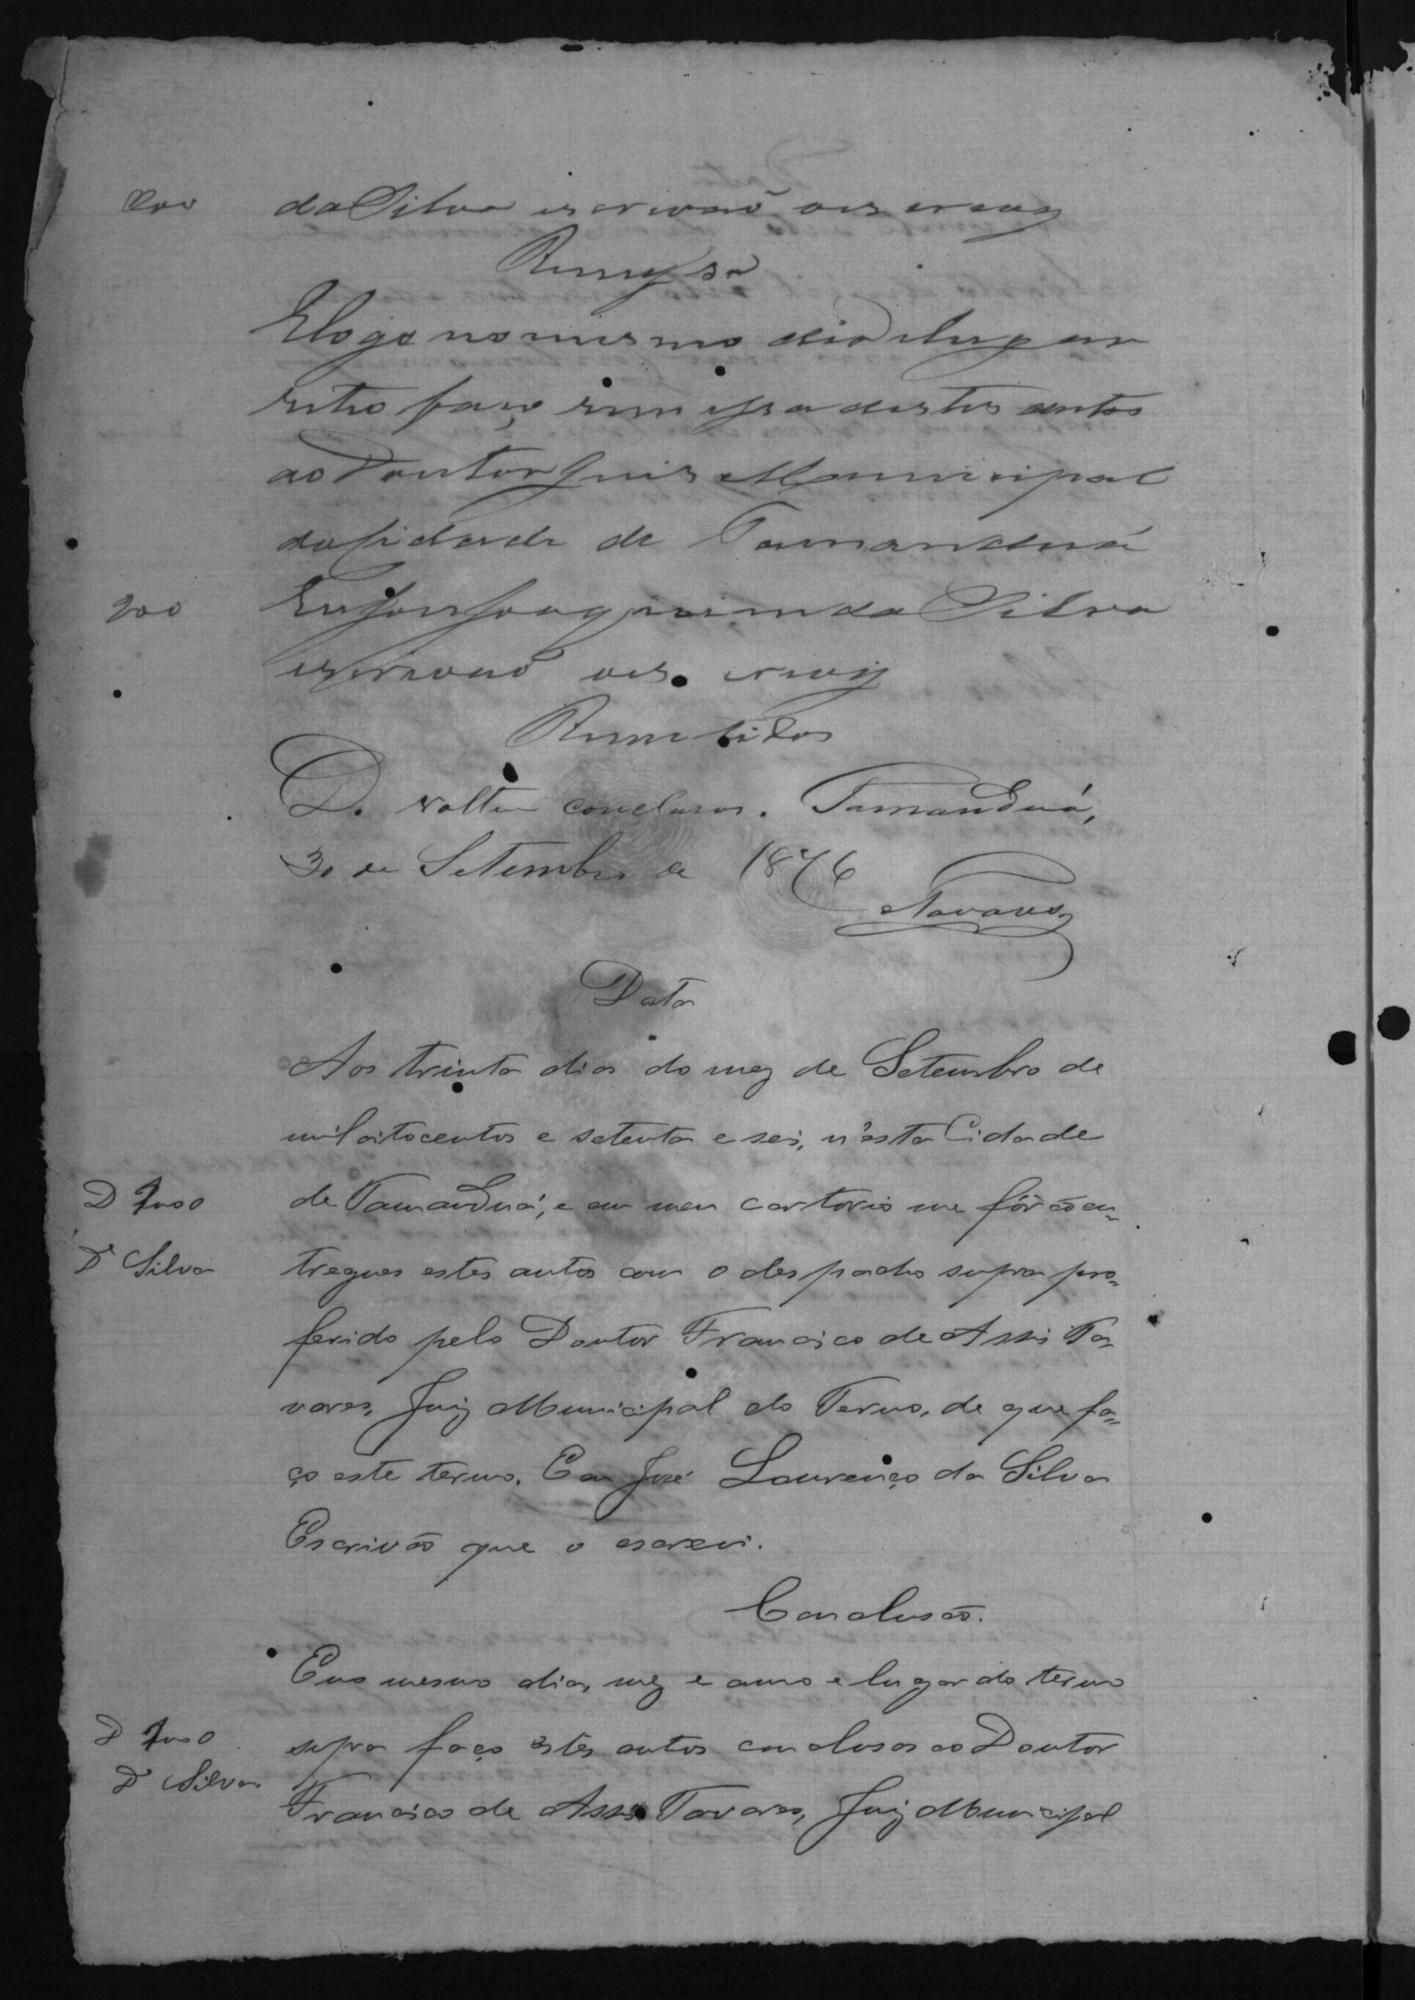 200 da Silva escrivaõ os escrevy
Remessa
E logo no mesmo dia e lugar
retro faço remessa destes autos
ao Doutor Juis Municipal
da Cidade de Tamanduá
200 Eu José Joaquim da Silva
escrivaõ escrevy
Remetidos
D. voltem conclusos. Tamanduá,
30 de Setembro de 1876
Tavares
Data
Aos trinta dias do mez de Setembro de
mil oitocentos e setenta e seis, n'esta Cidade
D 200 de Tamanduá, e em meu cartorio me fôrão en-
Dr Silva tregues estes autos com o despacho supra pro-
ferido pelo Doutor Francisco de Assis Ta-
vares, Juiz Municipal do Termo, de que fa-
ço este termo. Eu José Lourenço da Silva
Escrivão que o escrevi.
Conclusão.
E no mesmo dia, mez e anno e lugar do termo
D 200 supra faço estes autos conclusos ao Doutor
Dr Silva Francisco de Assis Tavares, Juiz Municipal